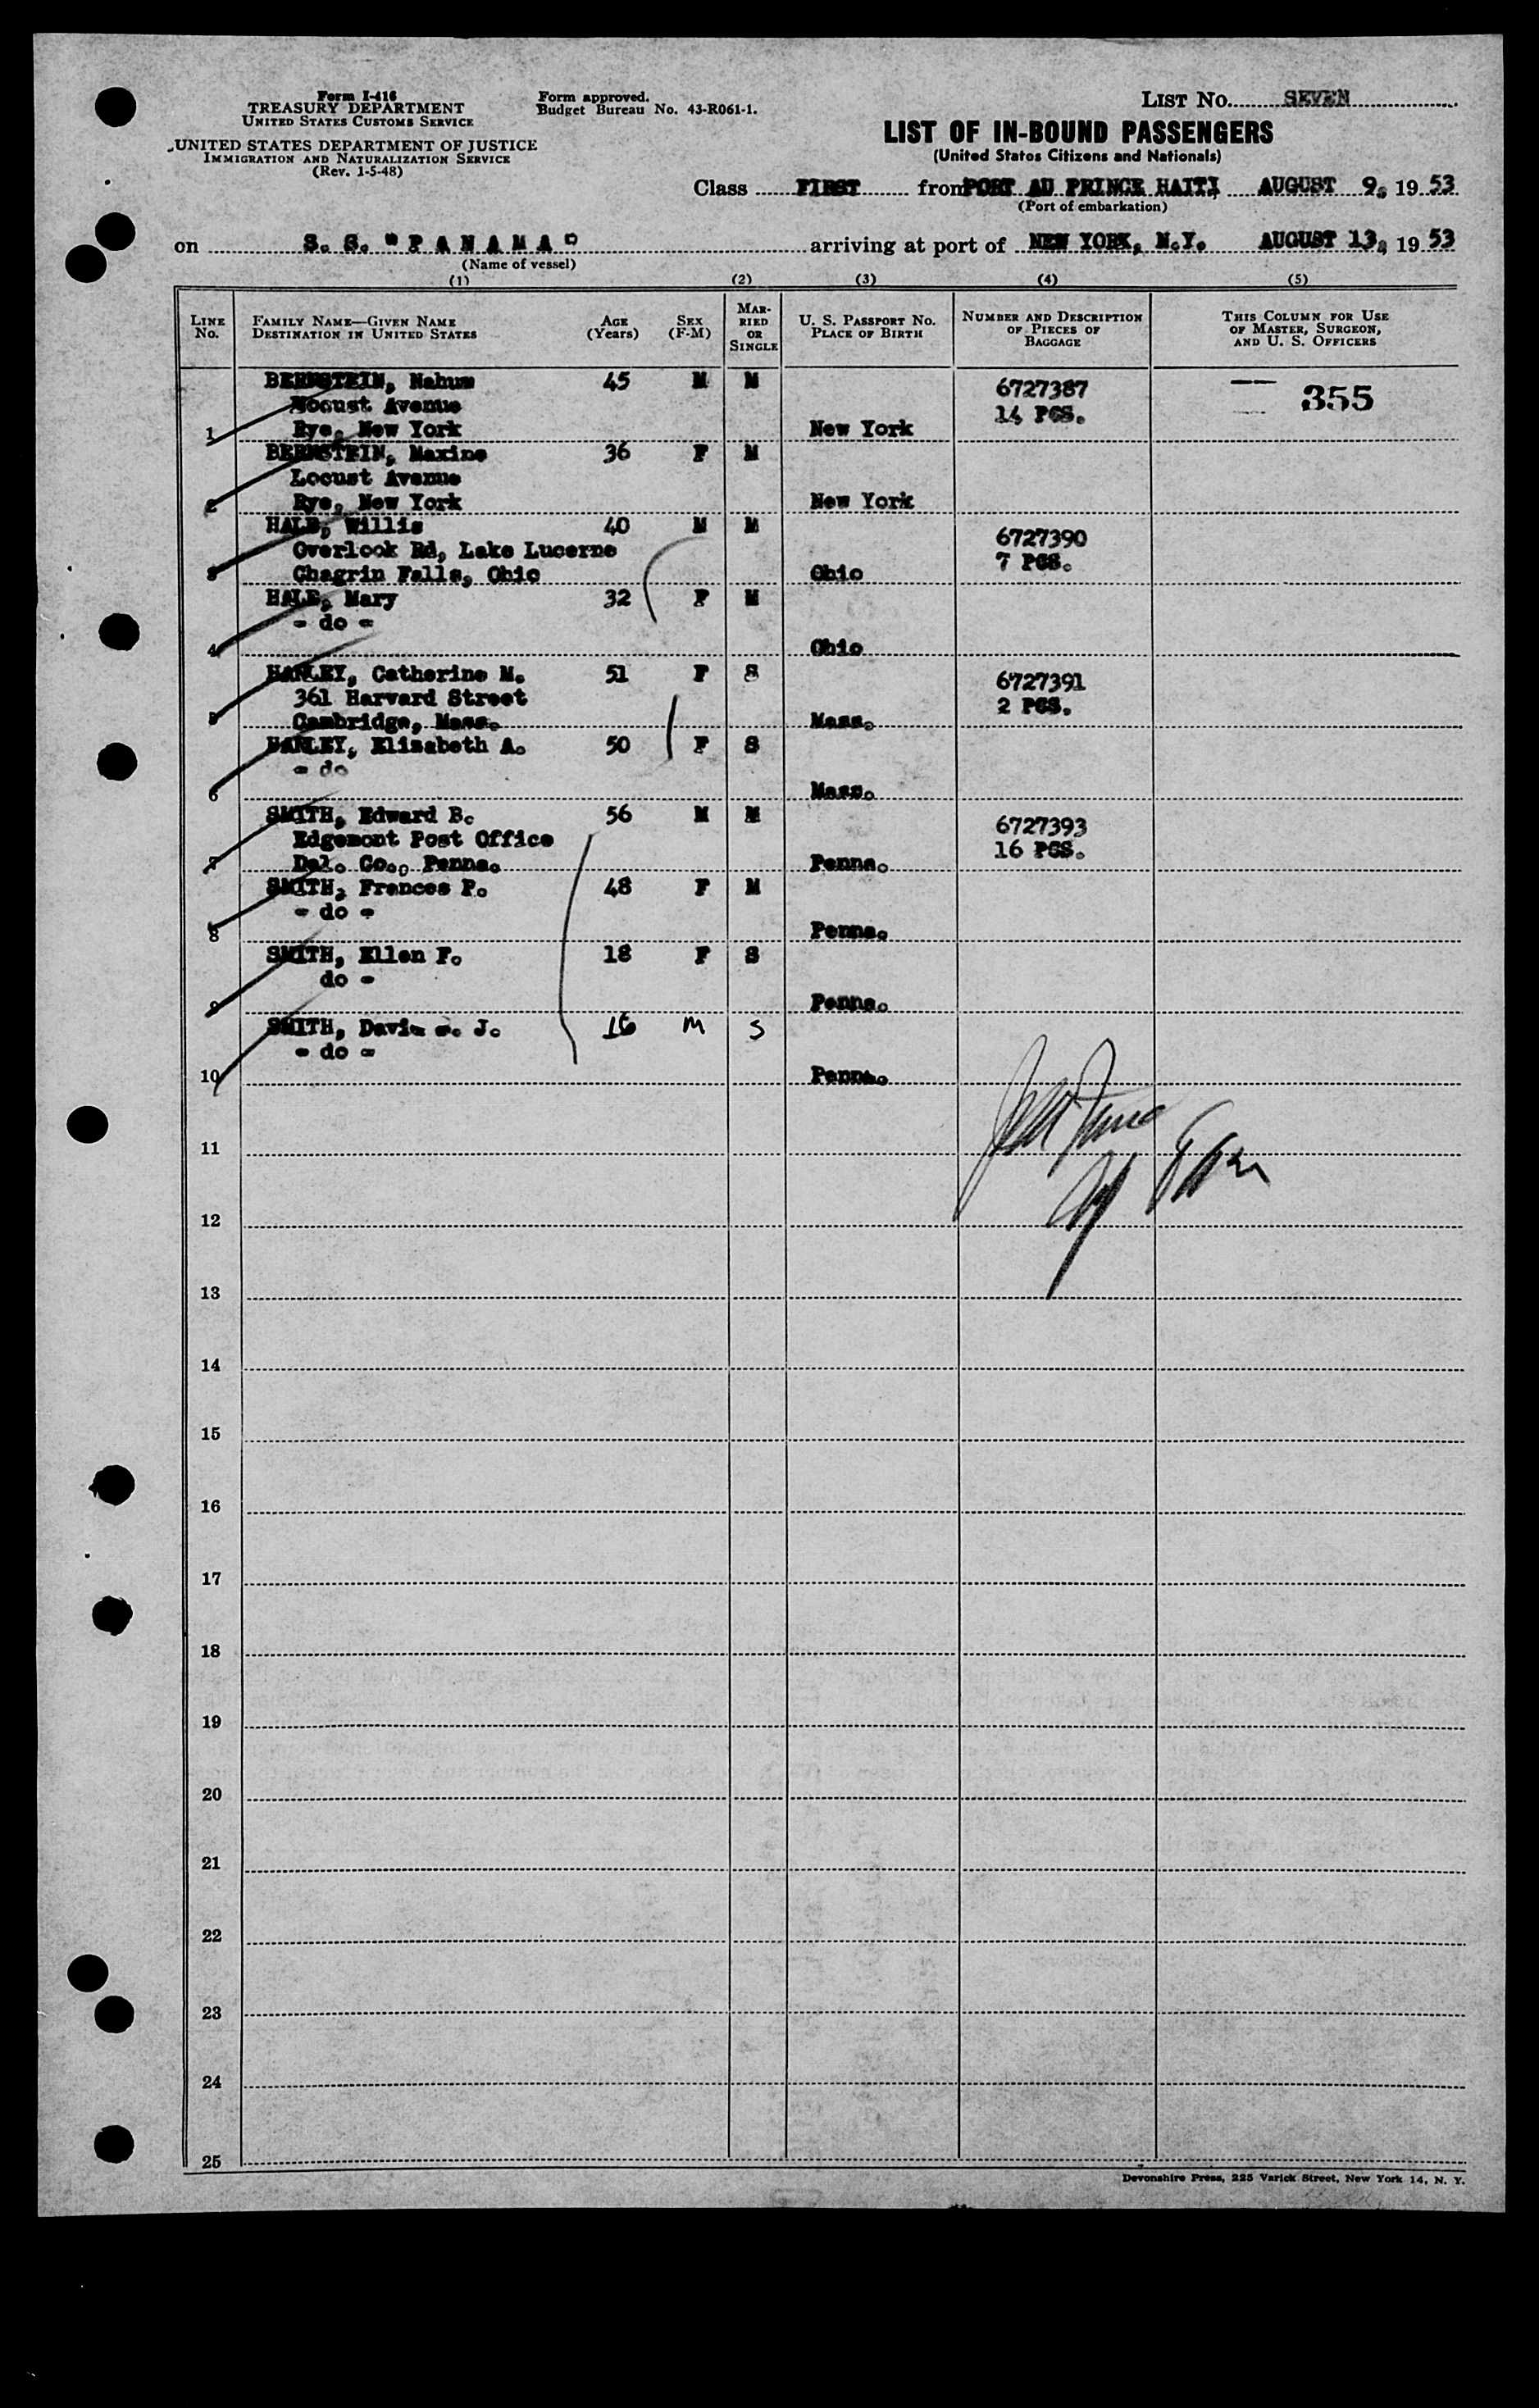 Form I-416
TREASURY DEPARTMENT
UNITED STATES CUSTOMS SERVICE
UNITED STATES DEPARTMENT OF JUSTICE
IMMIGRATION AND NATURALIZATION SERVICE
(Rev. 1-5-48)
Form approved.
Budget Bureau No. 43-R061-1.
LIST NO. SEVEN
LIST OF IN-BOUND PASSENGERS
(United States Citizens and Nationals)
Class FIRST from PORT AU PRINCE HAITI AUGUST 9, 19 53
(Port of embarkation)
on S. S. "P A N A M A" arriving at port of NEW YORK, N.Y. AUGUST 13, 19 53
(Name of vessel)
(1) (2) (3) (4) (5)
LINE NO. FAMILY NAME—GIVEN NAME DESTINATION IN UNITED STATES AGE (Years) SEX (F-M) MARRIED OR SINGLE U. S. PASSPORT NO. PLACE OF BIRTH NUMBER AND DESCRIPTION OF PIECES OF BAGGAGE THIS COLUMN FOR USE OF MASTER, SURGEON, AND U. S. OFFICERS
BERNSTEIN, Nahum 45 M M 6727387 355
Locust Avenue 14 PCS.
1 Rye, New York New York
BERNSTEIN, Maxine 36 F M
Locust Avenue
2 Rye, New York New York
HALE, Willis 40 M M 6727390
Overlook Rd, Lake Lucerne 7 PCS.
3 Chagrin Falls, Ohio Ohio
HALE, Mary 32 F M
- do -
4 Ohio
HANLEY, Catherine M. 51 F S 6727391
361 Harvard Street 2 PCS.
5 Cambridge, Mass. Mass.
HANLEY, Elizabeth A. 50 F S
- do
6 Mass.
SMITH, Edward B. 56 M M 6727393
Edgemont Post Office 16 PCS.
7 Del. Co., Penna. Penna.
SMITH, Frances P. 48 F M
- do -
8 Penna.
SMITH, Ellen F. 18 F S
do -
9 Penna.
SMITH, J. 16 M S
- do -
10 Penna.
11
12
13
14
15
16
17
18
19
20
21
22
23
24
25
Devonshire Press, 225 Varick Street, New York 14, N. Y.